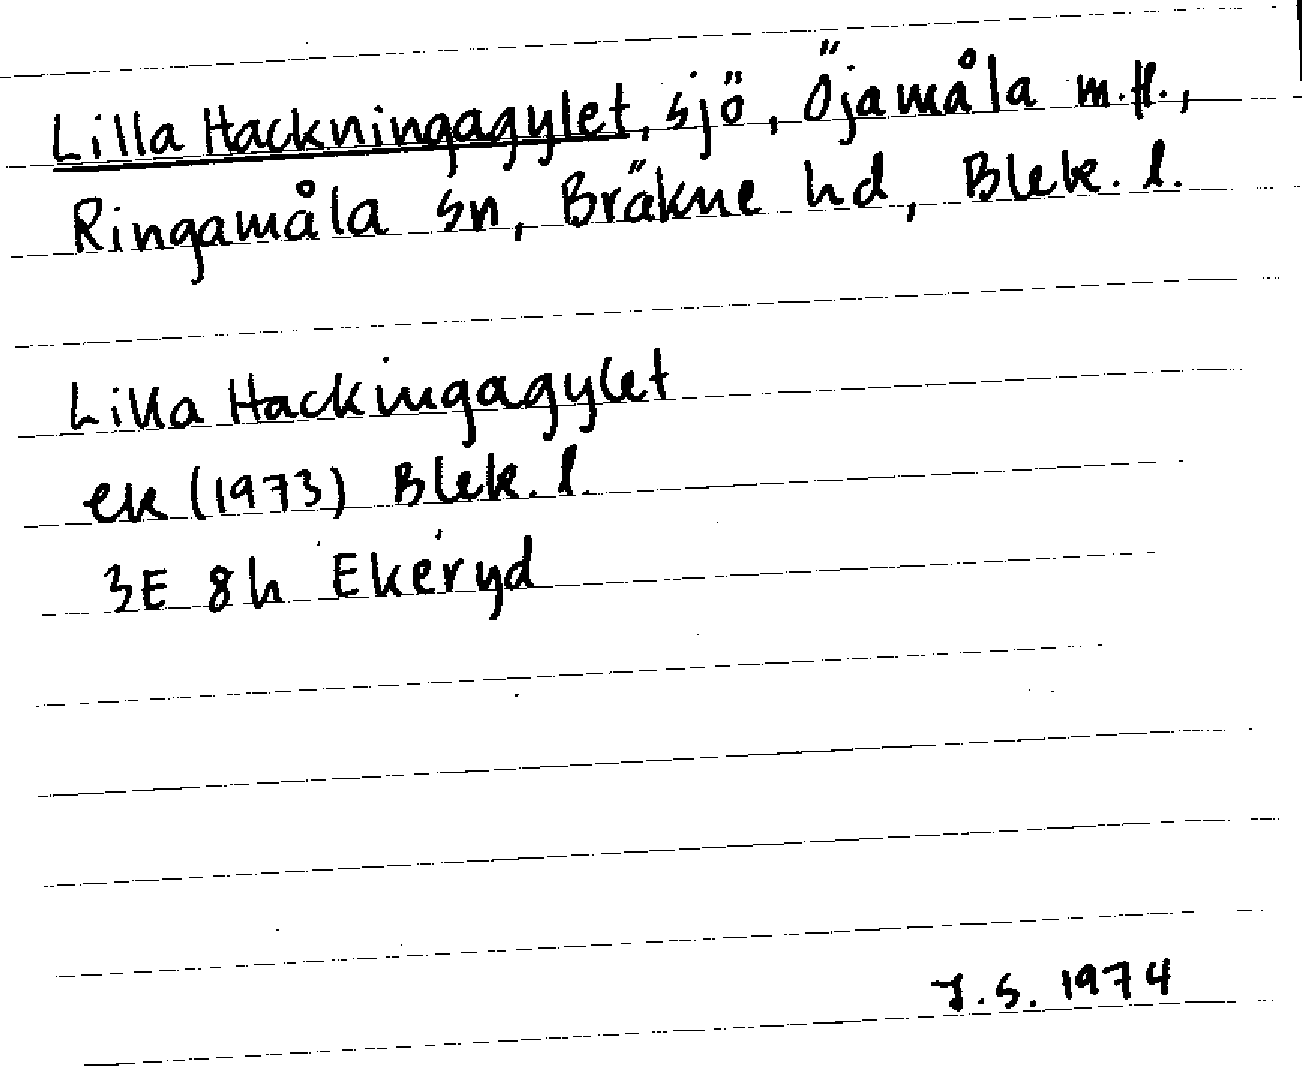 Lilla Hackningagylet, sjö, Öjamåla m.fl.,
Ringamåla sn, Bräkne hd, Blek. l.
Lilla Hackingagylet
ek (1973) Blek. l.
3E 8h Ekeryd
J.S. 1974